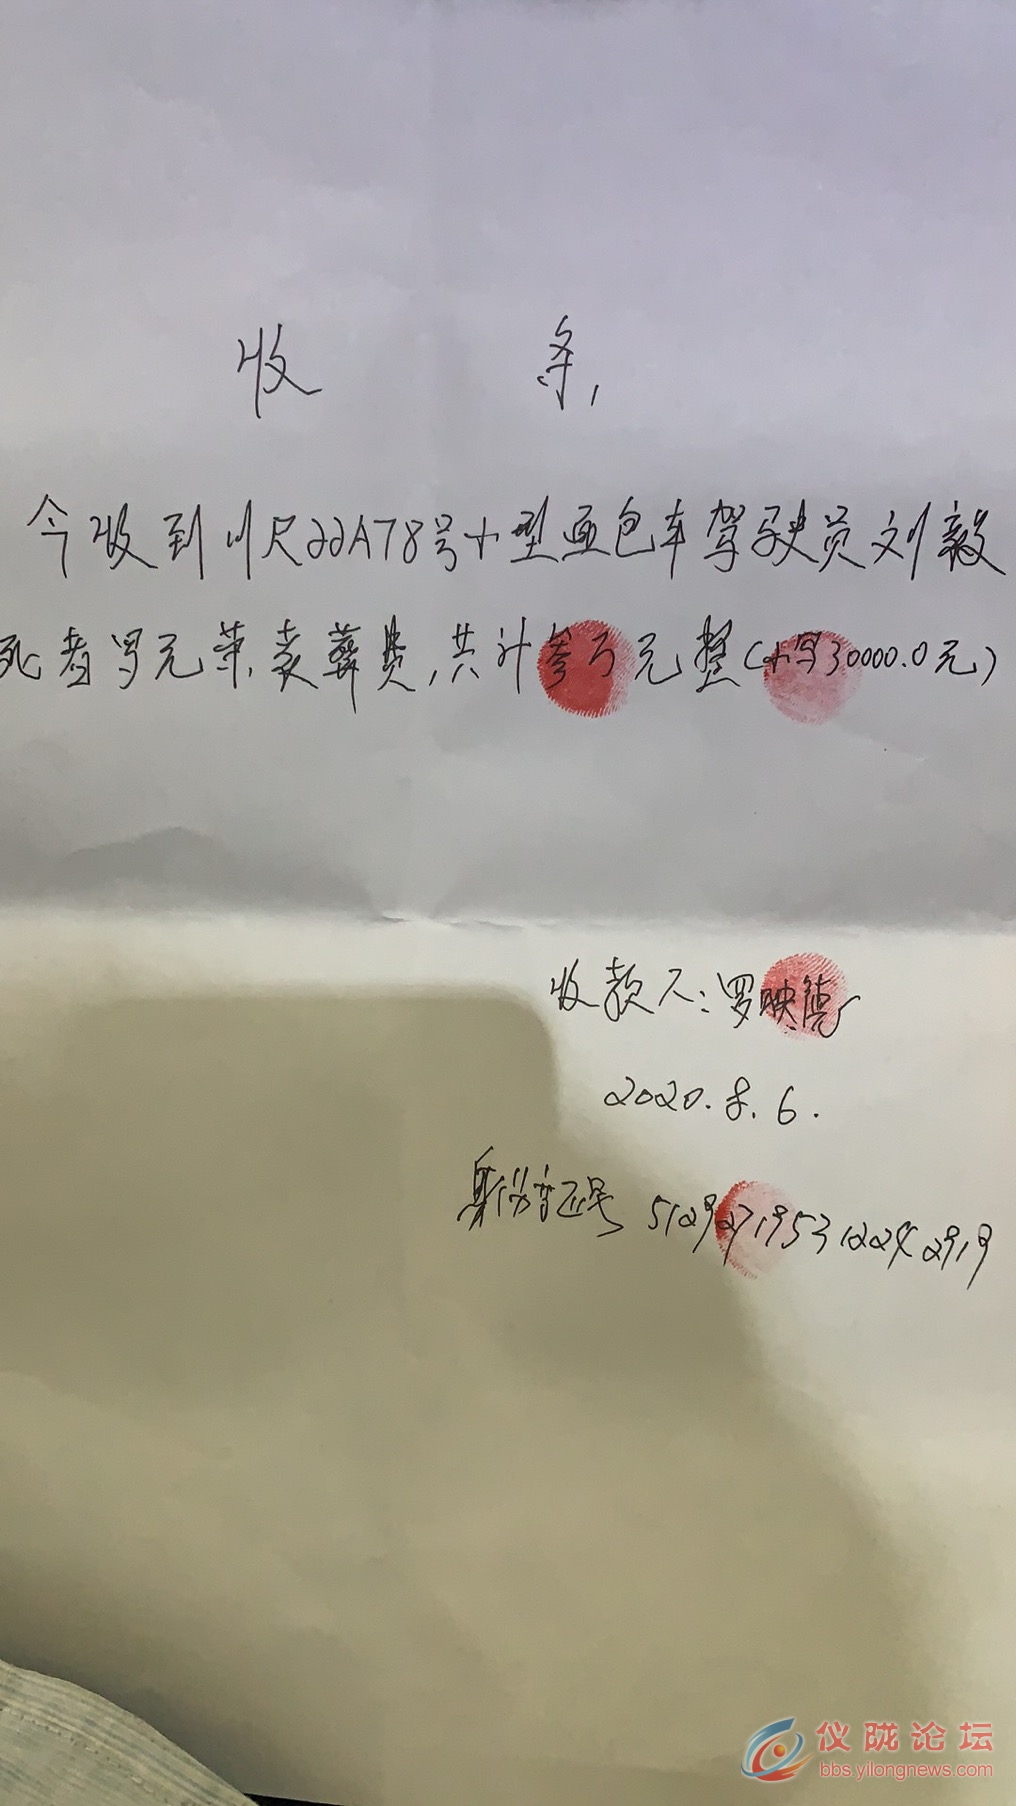 收 条,
今收到川R22A78号小型面包车驾驶员刘毅
死者罗元荣丧葬费,共计叁万元整(小写30000.0元)
收款人:罗映德
2020.8.6.
身份证号 512927195312242919
仪陇论坛
bbs.yilongnews.com